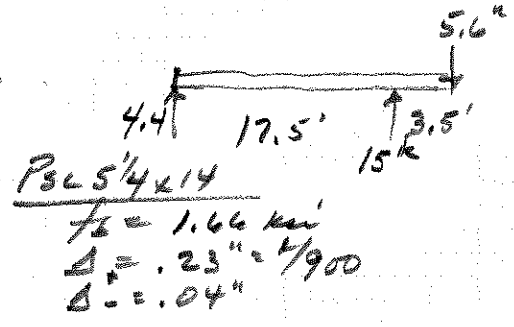 5.6ᵏ
4.4 17.5' 3.5'
15ᵏ
PSL 5¼x14
fb = 1.66 ksi
Δ = .23" = L/900
Δ = .04"